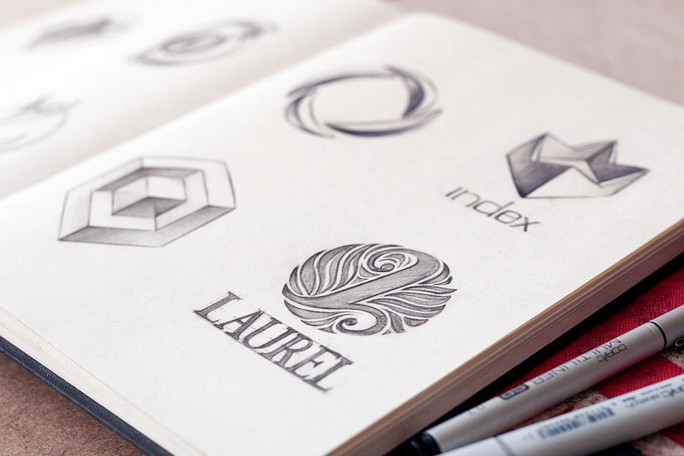 index
LAUREL
copic MULTILINER